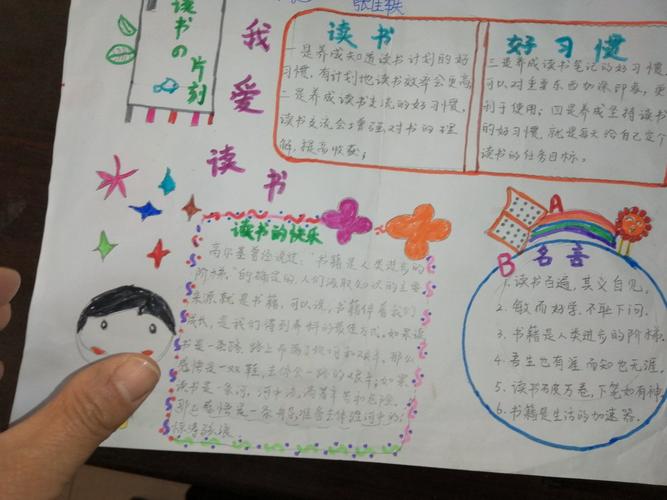 张佳轶
读书の
片刻
我爱
读书
读书 好习惯
一是养成知道读书计划的好
习惯，有计划地读书效率会更高
二是养成读书交流的好习惯，
读书交流会增强对书的理
解，提高收获；
三是养成读书笔记的好习惯
可以对重要东西加深印象，更
利于使用；四是养成坚持读书
的好习惯，就是每天给自己定个
读书的任务目标。
读书的快乐
高尔基曾经说过："书籍是人类进步的
阶梯，"的确是的，人们汲取知识的主要
来源就是书籍，可以说，书籍伴着我们
成长，是我们得到养料的最佳方式。如果读
书是一条路，路上布满了坎坷和艰辛，那么
感悟是一双鞋，去体会一路的艰辛；如果
读书是一条河，河中流淌着辛苦和危险，
那么感悟是一条舟，准备去体验河中的
惊涛骇浪
A
B 名言
1. 读书百遍，其义自见。
2. 敏而好学，不耻下问。
3. 书籍是人类进步的阶梯。
4. 吾生也有涯而知也无涯。
5. 读书破万卷，下笔如有神。
6. 书籍是生活的加速器。